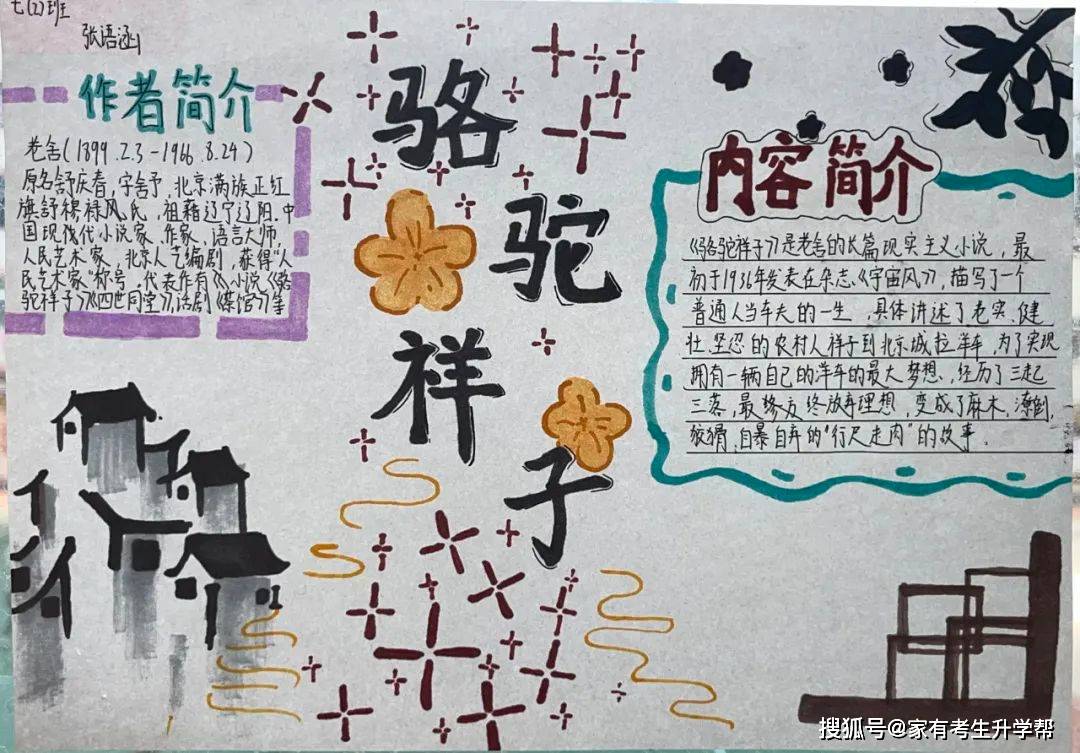 七(2)班
张语涵
作者简介
老舍(1899.2.3-1966.8.24)
原名舒庆春,字舍予,北京满族正红
旗舒穆禄风氏,祖籍辽宁辽阳.中
国现代小说家、作家、语言大师,
人民艺术家,北京人艺编剧,获得“人
民艺术家”称号。代表作有《》小说《骆
驼祥子》《四世同堂》,话剧《茶馆》等
骆
驼
祥
子
内容简介
《骆驼祥子》是老舍的长篇现实主义小说,最
初于1936年发表在杂志《宇宙风》,描写了一个
普通人当车夫的一生,具体讲述了老实、健
壮、坚忍的农村人祥子到北京城拉洋车,为了实现
拥有一辆自己的洋车的最大梦想,经历了三起
三落,最终放弃理想,变成了麻木,潦倒,
狡猾,自暴自弃的“行尸走肉”的故事.
搜狐号@家有考生升学帮